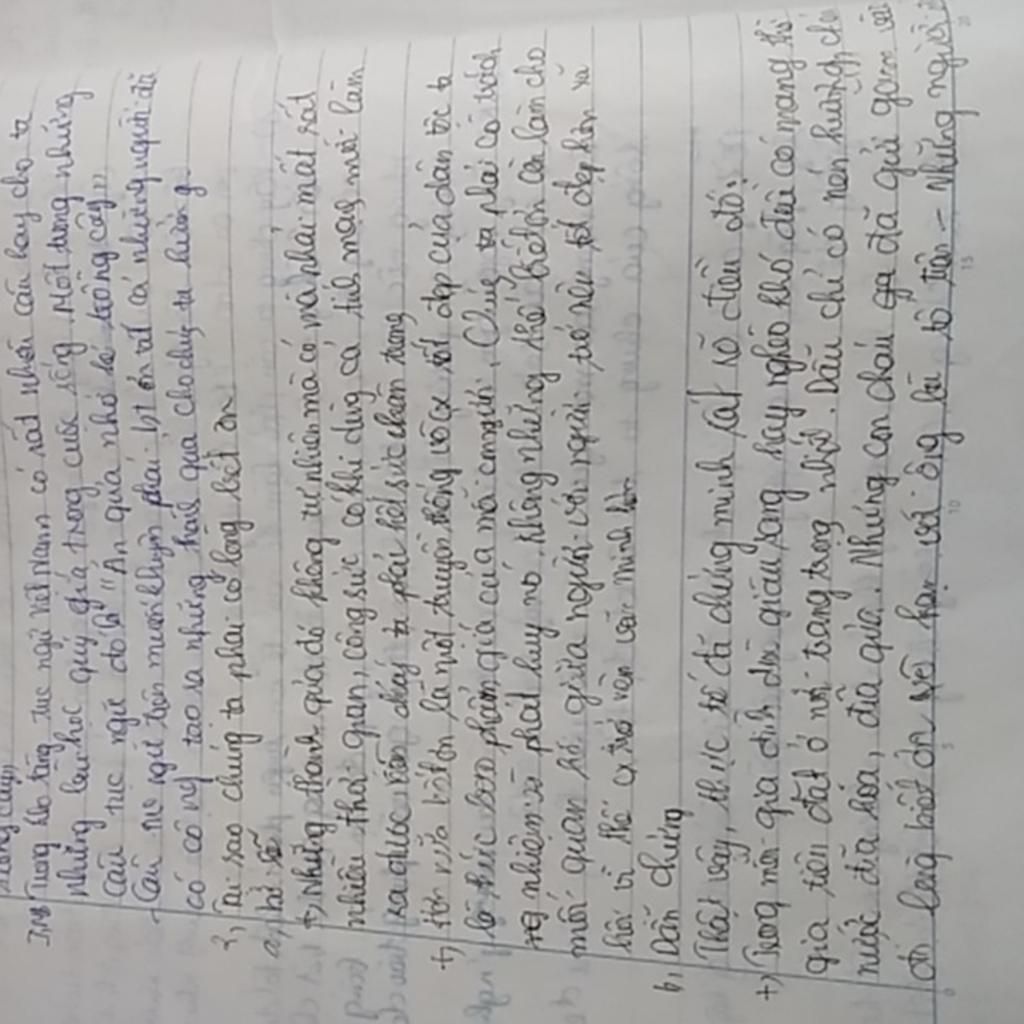 trồng cây"
Trong kho tàng tục ngữ Việt Nam có rất nhiều câu hay cho ta
những bài học quý giá trong cuộc sống. Một trong những
câu tục ngữ đó là "Ăn quả nhớ kẻ trồng cây"
- Câu tục ngữ trên muốn khuyên phải biết ơn tất cả những người đã
có công tạo ra những thành quả cho chúng ta hưởng.
2, Tại sao chúng ta phải có lòng biết ơn
a, Lí lẽ
+) Những thành quả đó không tự nhiên mà có mà phải mất rất
nhiều thời gian, công sức có khi dùng cả tính mạng mới làm
ra được vì vậy ta phải hết sức trân trọng
+) Hơn nữa biết ơn là một truyền thống vô cx tốt đẹp của dân tộc ta
là thước đo phẩm giá của mỗi con người. Chúng ta phải có trách
nhiệm phát huy nó không những thế biết ơn còn làm cho
mối quan hệ giữa người với người trở nên tốt đẹp hơn xã
hội vì thế cx trở nên văn minh
b, Dẫn chứng
Thật vậy, thực tế đã chứng minh rất rõ điều đó:
+) Trong mỗi gia đình dù giàu sang hay nghèo khó đều có mang thờ
gia tiên đặt ở nơi trang trọng nhất. Dẫu chỉ có nén hương, chén
nước đĩa hoa, đĩa quả. Nhưng con cháu đã gửi gắm
lòng biết ơn vô hạn với ông bà tổ tiên - Những người